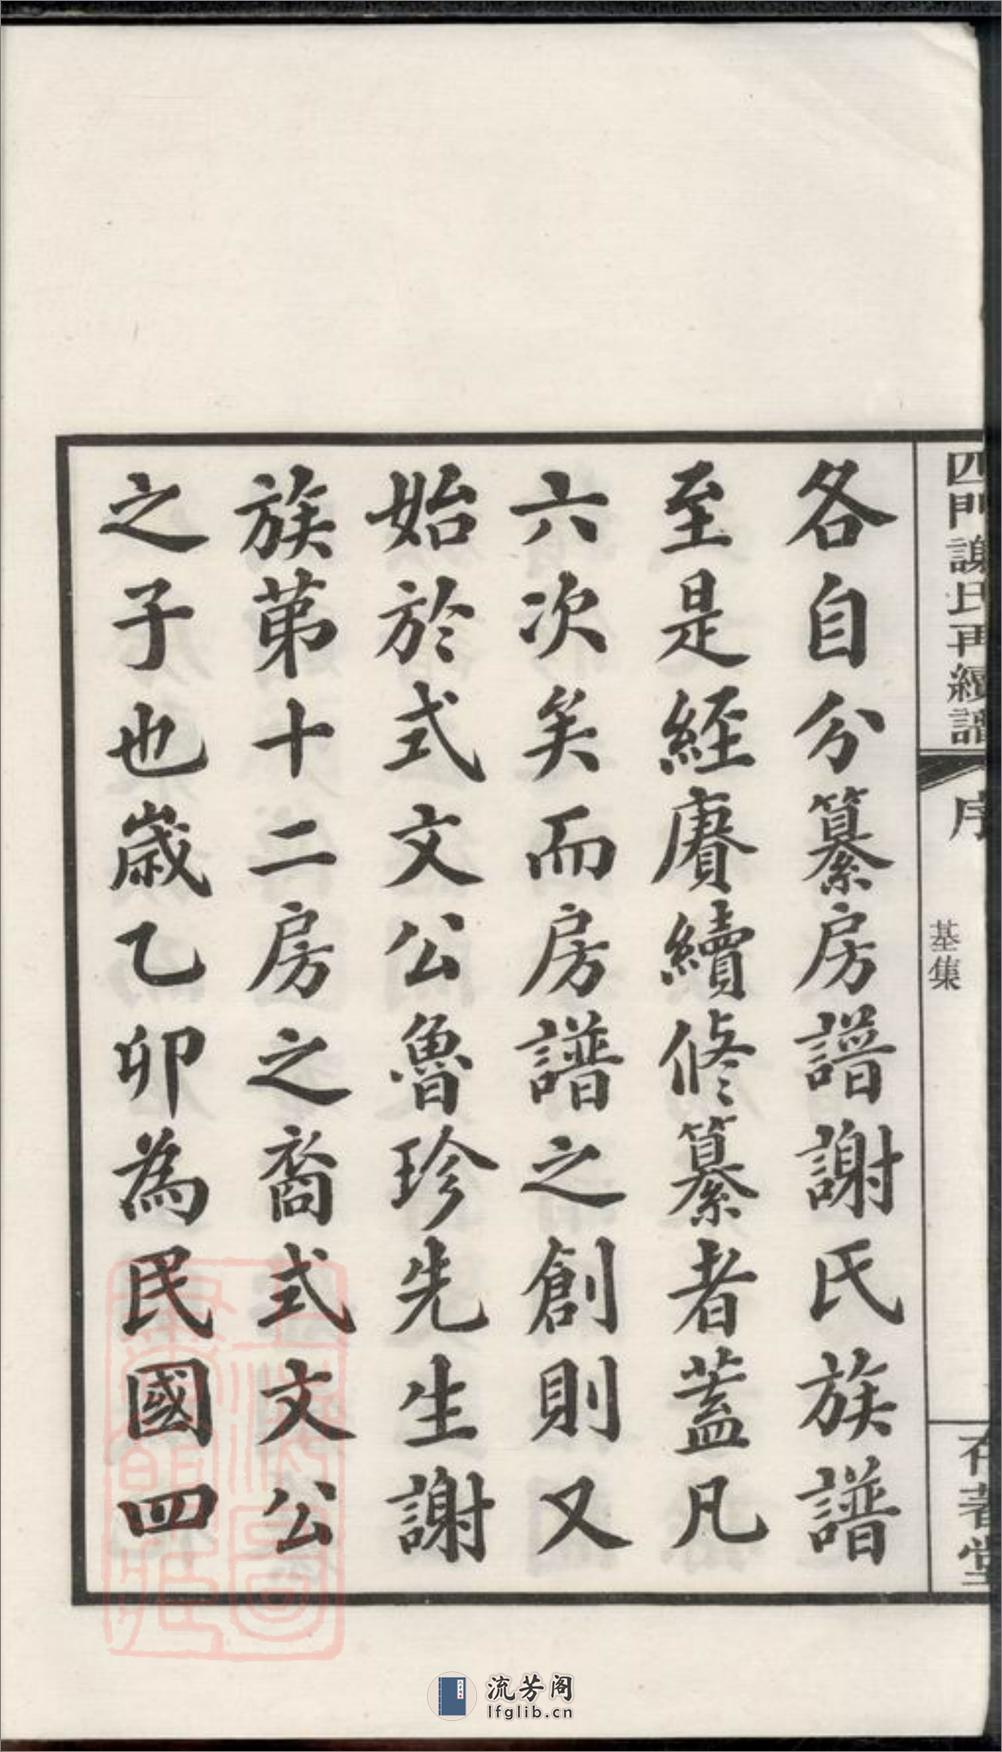 四門謝氏再續譜
序
基集
存著堂
各自分纂房譜謝氏族譜
至是經賡續修纂者蓋凡
六次矣而房譜之創則又
始於式文公魯珍先生謝
族第十二房之裔式文公
之子也歲乙卯為民國四
流芳阁
lfglib.cn